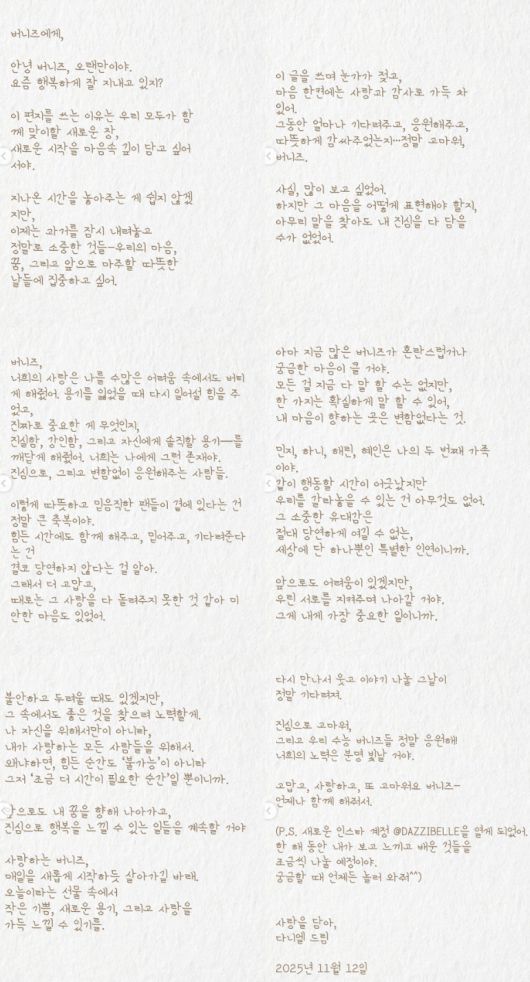 버니즈에게,
안녕 버니즈, 오랜만이야.
요즘 행복하게 잘 지내고 있지?
이 편지를 쓰는 이유는 우리 모두가 함
께 맞이할 새로운 장,
새로운 시작을 마음속 깊이 담고 싶어
서야.
지나온 시간을 놓아주는 게 쉽지 않겠
지만,
이제는 과거를 잠시 내려놓고
정말로 소중한 것들-우리의 마음,
꿈, 그리고 앞으로 마주할 따뜻한
날들에 집중하고 싶어.
이 글을 쓰며 눈가가 젖고,
마음 한켠에는 사랑과 감사로 가득 차
있어.
그동안 얼마나 기다려주고, 응원해주고,
따뜻하게 감싸주었는지…정말 고마워,
버니즈.
사실, 많이 보고 싶었어.
하지만 그 마음을 어떻게 표현해야 할지,
아무리 말을 찾아도 내 진심을 다 담을
수가 없었어.
버니즈,
너희의 사랑은 나를 수많은 어려움 속에서도 버티
게 해줬어. 용기를 잃었을 때 다시 일어설 힘을 주
었고,
진짜로 중요한 게 무엇인지,
진실함, 강인함, 그리고 자신에게 솔직할 용기—를
깨닫게 해줬어. 너희는 나에게 그런 존재야.
진심으로, 그리고 변함없이 응원해주는 사람들.
이렇게 따뜻하고 믿음직한 팬들이 곁에 있다는 건
정말 큰 축복이야.
힘든 시간에도 함께 해주고, 믿어주고, 기다려준다
는 건
결코 당연하지 않다는 걸 알아.
그래서 더 고맙고,
때로는 그 사랑을 다 돌려주지 못한 것 같아 미
안한 마음도 있었어.
아마 지금 많은 버니즈가 혼란스럽거나
궁금한 마음이 클 거야.
모든 걸 지금 다 말 할 수는 없지만,
한 가지는 확실하게 말 할 수 있어,
내 마음이 향하는 곳은 변함없다는 것.
민지, 하니, 해린, 혜인은 나의 두 번째 가족
이야.
같이 행동할 시간이 어긋났지만
우리를 갈라놓을 수 있는 건 아무것도 없어.
그 소중한 유대감은
절대 당연하게 여길 수 없는,
세상에 단 하나뿐인 특별한 인연이니까.
앞으로도 어려움이 있겠지만,
우린 서로를 지켜주며 나아갈 거야.
그게 내게 가장 중요한 일이니까.
불안하고 두려울 때도 있겠지만,
그 속에서도 좋은 것을 찾으려 노력할게.
나 자신을 위해서만이 아니라,
내가 사랑하는 모든 사람들을 위해서.
왜냐하면, 힘든 순간도 '불가능'이 아니라
그저 '조금 더 시간이 필요한 순간'일 뿐이니까.
앞으로도 내 꿈을 향해 나아가고,
진심으로 행복을 느낄 수 있는 일들을 계속할 거야
사랑하는 버니즈,
매일을 새롭게 시작하듯 살아가길 바래.
오늘이라는 선물 속에서
작은 기쁨, 새로운 용기, 그리고 사랑을
가득 느낄 수 있기를.
다시 만나서 웃고 이야기 나눌 그날이
정말 기다려져.
진심으로 고마워,
그리고 우리 수능 버니즈들 정말 응원해
너희의 노력은 분명 빛날 거야.
고맙고, 사랑하고, 또 고마워요 버니즈-
언제나 함께 해줘서.
(P.S. 새로운 인스타 계정 @DAZZIBELLE을 열게 되었어.
한 해 동안 내가 보고 느끼고 배운 것들을
조금씩 나눌 예정이야.
궁금할 때 언제든 놀러 와줘^^)
사랑을 담아,
다니엘 드림
2025년 11월 12일